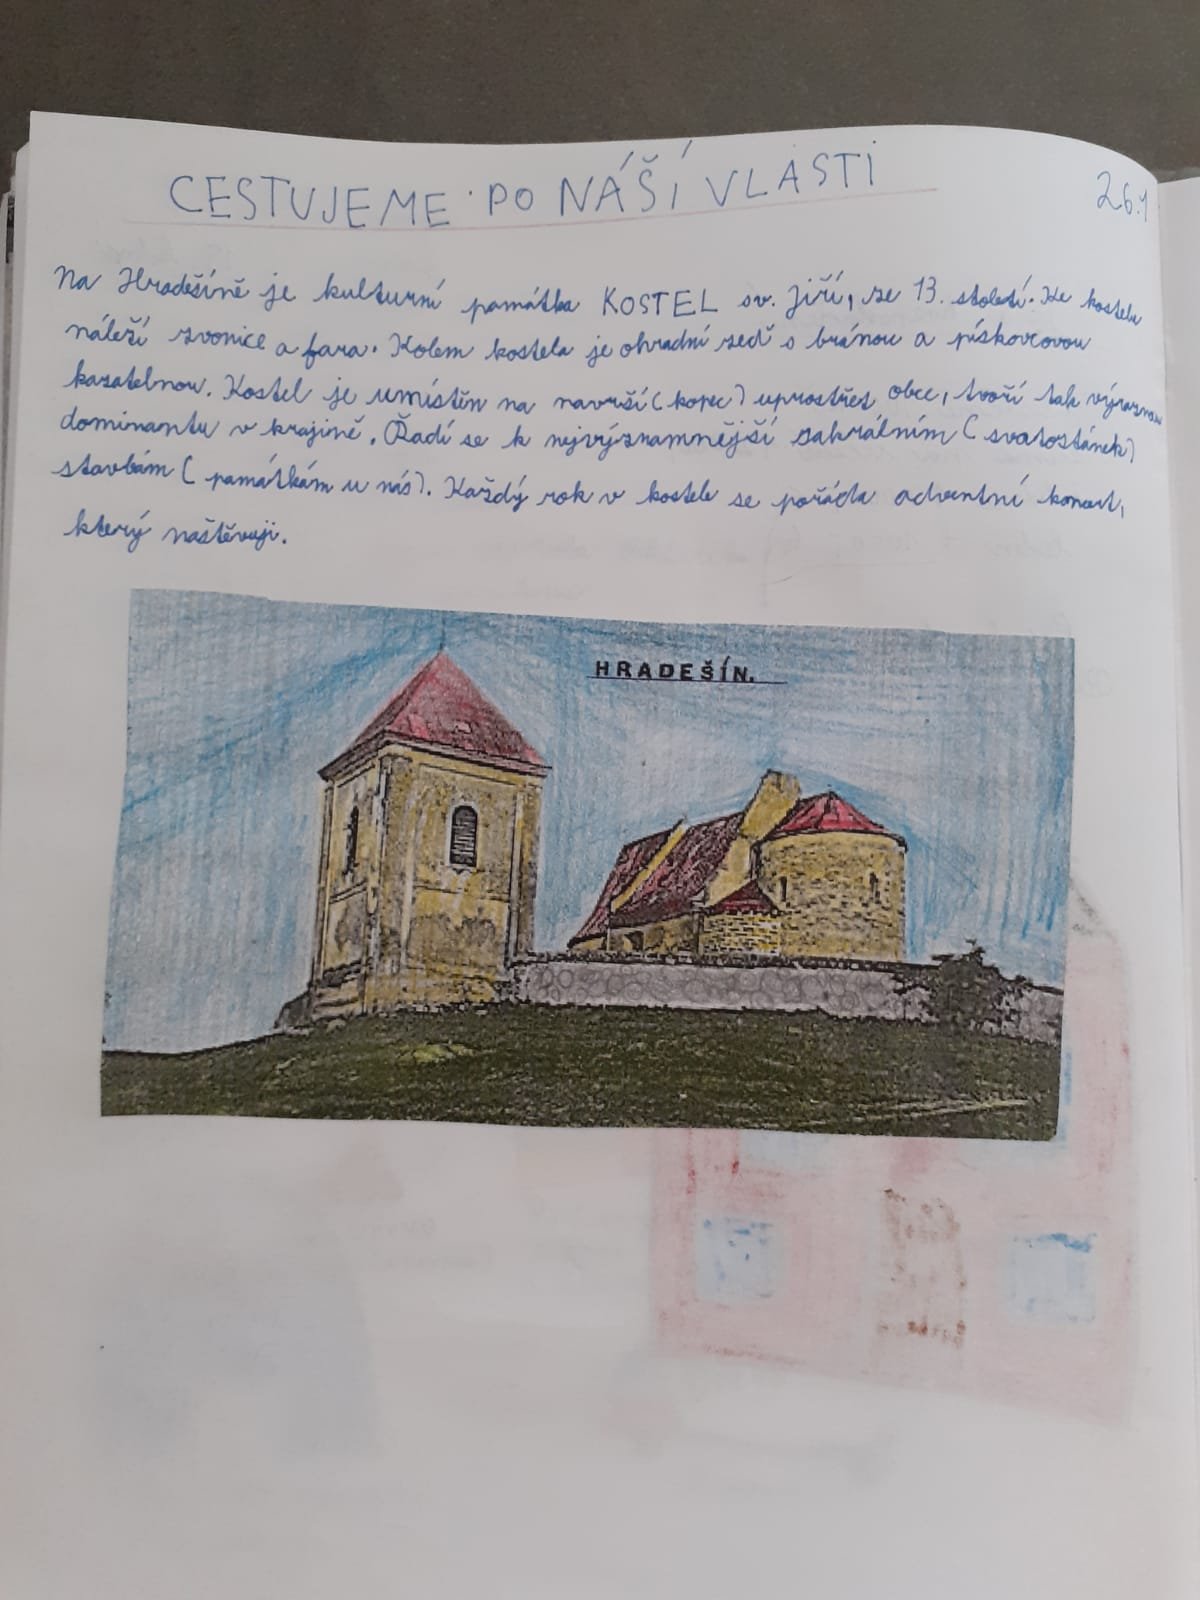 CESTUJEME PO NÁŠÍ VLASTI
26.1
Na Hradešíně je kulturní památka KOSTEL sv. Jiří, ze 13. století. Ke kostelu
náleží zvonice a fara. Kolem kostela je ohradní zeď s bránou a pískovcovou
kazatelnou. Kostel je umístěn na navrší (kopec) uprostřet obce, tvoří tak výraznou
dominantu v krajině. Řadí se k nejvýznamnější sakrálním (svatostánek)
stavbám (památkám u nás). Každý rok v kostele se pořáda adventní koncert,
který naštěvuji.
HRADEŠÍN.